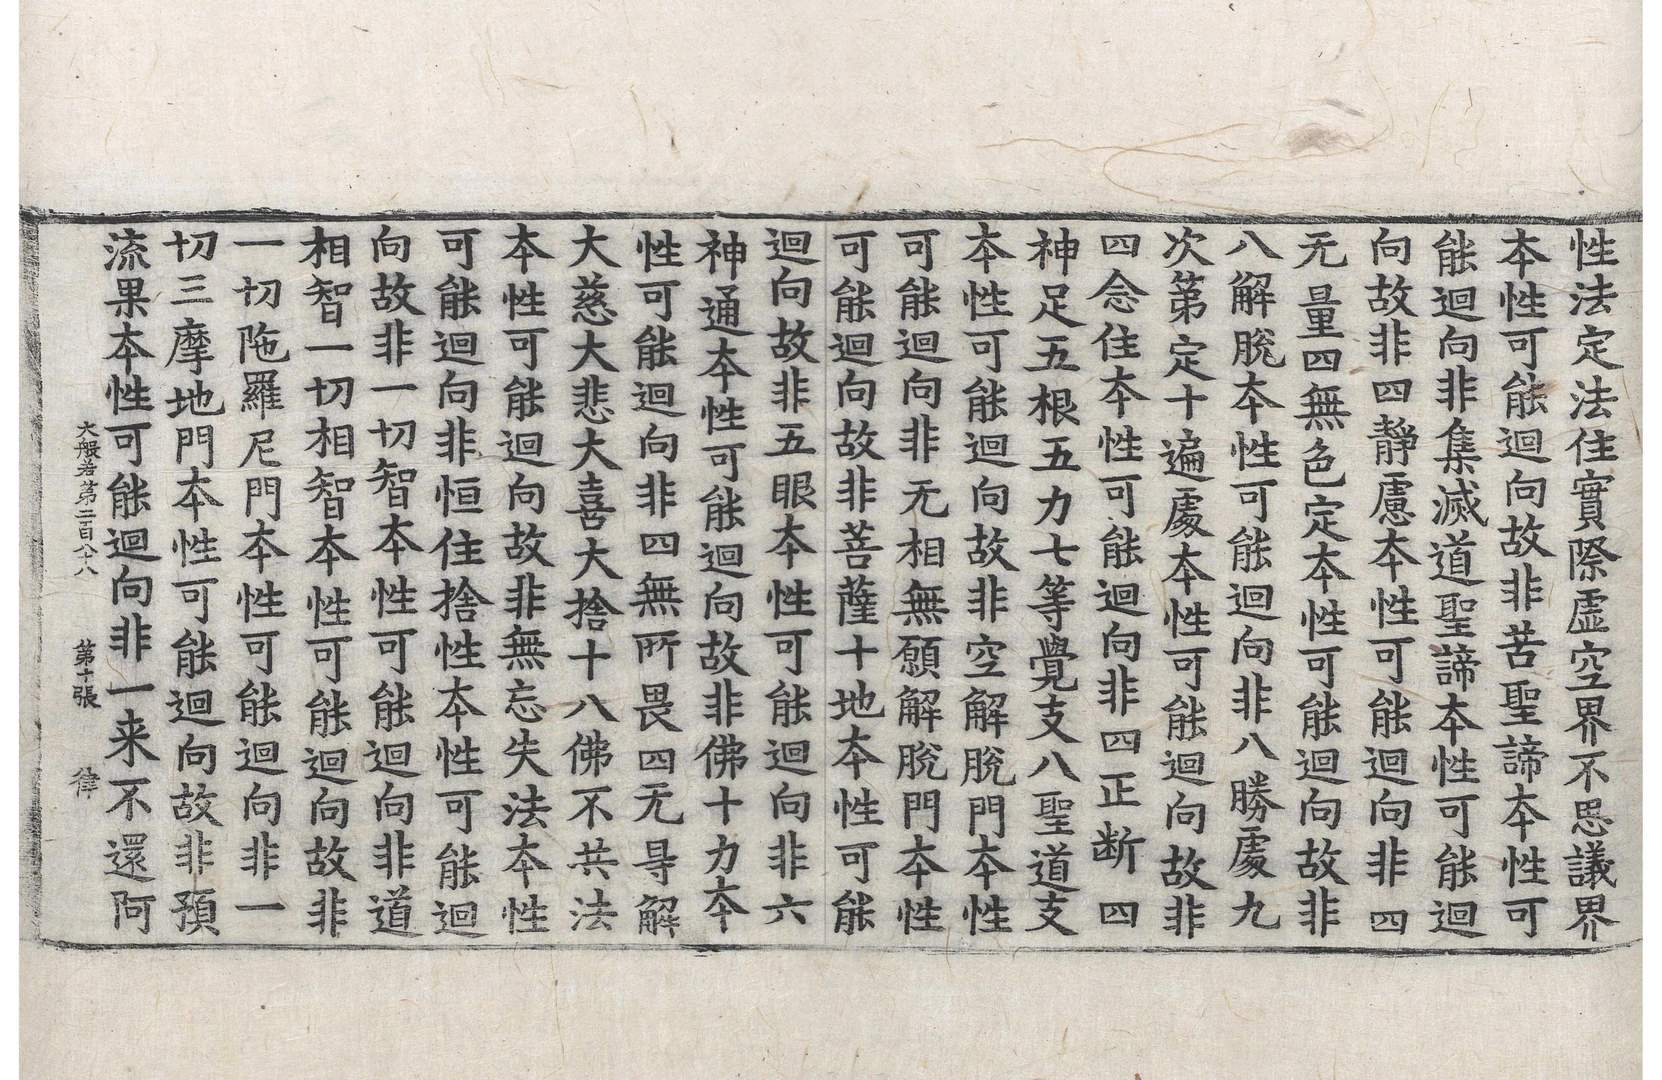 性法定法住實際虛空界不思議界
本性可能迴向故非苦聖諦本性可
能迴向非集滅道聖諦本性可能迴
向故非四靜慮本性可能迴向非四
无量四無色定本性可能迴向故非
八解脫本性可能迴向非八勝處九
次第定十遍處本性可能迴向故非
四念住本性可能迴向非四正断四
神足五根五力七等覺支八聖道支
本性可能迴向故非空解脫門本性
可能迴向非无相無願解脫門本性
可能迴向故非菩薩十地本性可能
迴向故非五眼本性可能迴向非六
神通本性可能迴向故非佛十力本
性可能迴向非四無所畏四无㝵解
大慈大悲大喜大捨十八佛不共法
本性可能迴向故非無忘失法本性
可能迴向非恒住捨性本性可能迴
向故非一切智本性可能迴向非道
相智一切相智本性可能迴向故非
一切陁羅尼門本性可能迴向非一
切三摩地門本性可能迴向故非預
流果本性可能迴向非一来不還阿
大般若第二百八十八 第十張 律